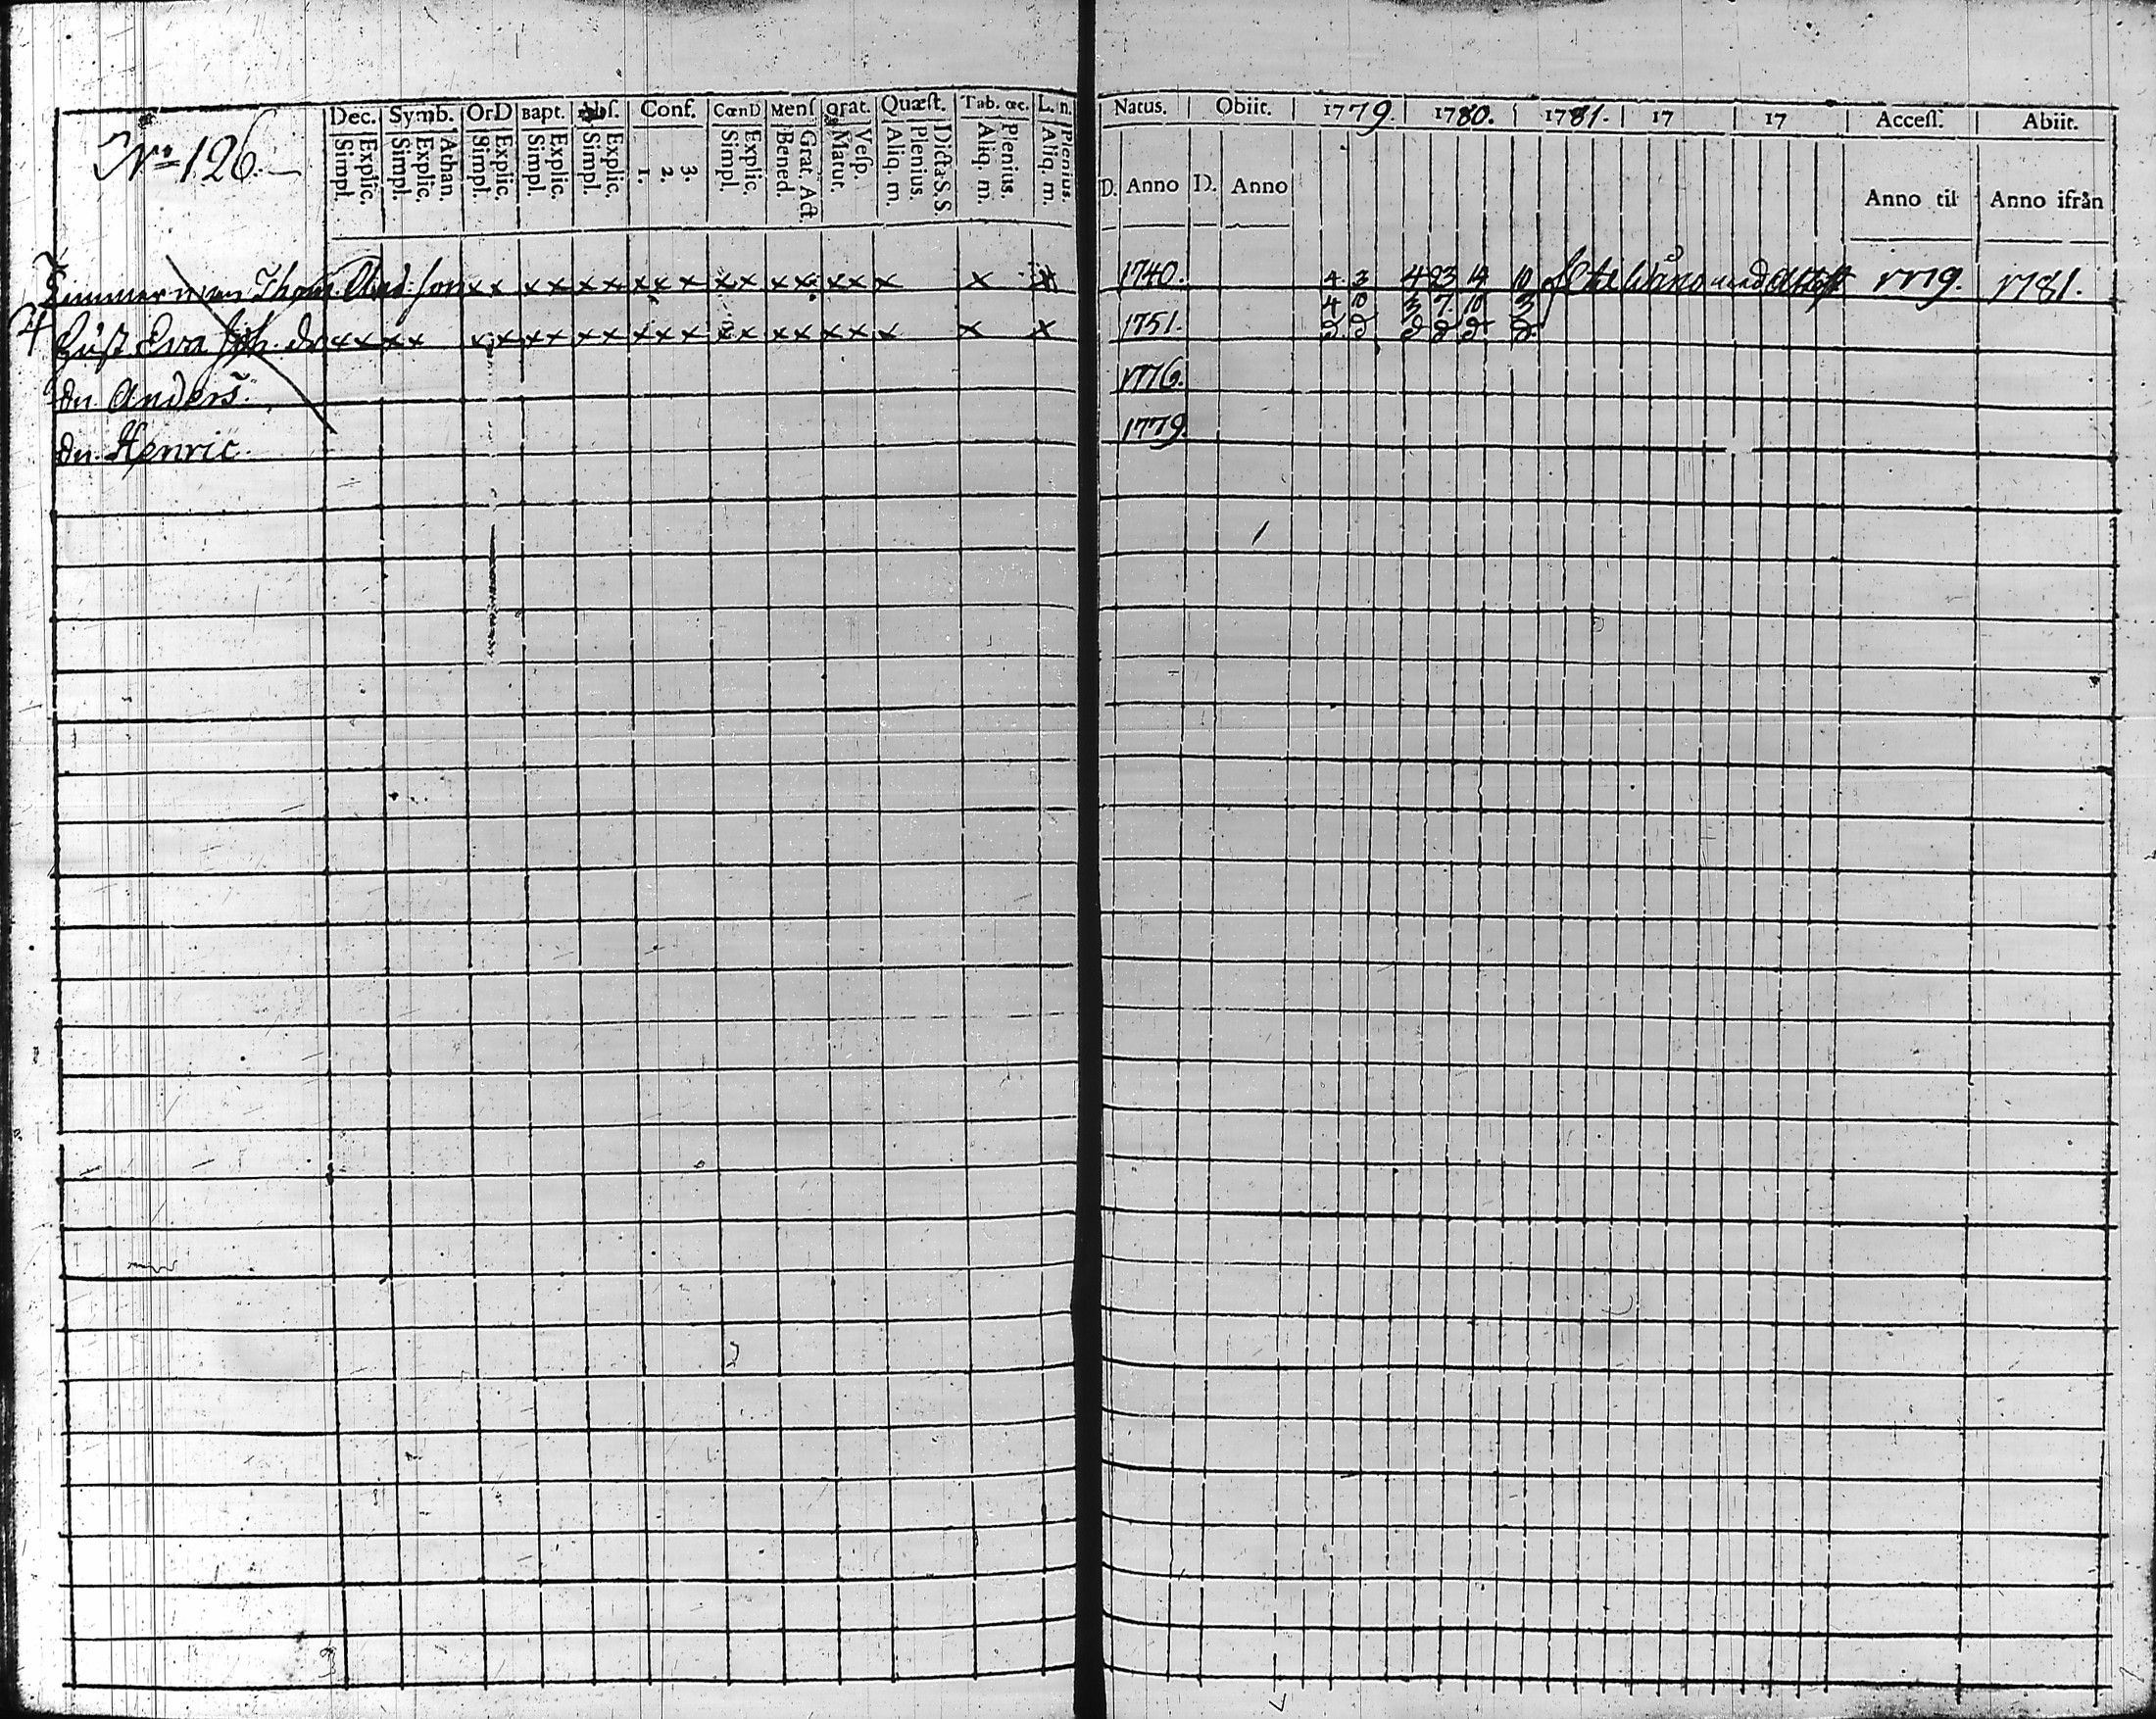 Dec. Symb. OrD Bapt. Abſ. Conf. CœnD Menſ Orat. Quæſt. Tab. œc. L. n. Natus. Obiit. 1779. 1780. 1781. 17 17 Acceſſ. Abiit.
Nr 126.
Simpl. Explic. Simpl. Explic. Athan. Simpl. Explic. Simpl. Explic. Simpl. Explic. 1. 2. 3. Simpl. Explic. Bened. Grat. Act Matut. Veſp. Aliq. m. Plenius. Dicta S. S. Aliq. m. Plenius. Aliq. m. Plenius. D. Anno D. Anno Anno til Anno ifrån
Zimmerman Thom son x x x x x x x x x x x x x x x x x x 1740. 4 3 4 23 14 10 1779. 1781.
4 10 3 7 10 3
Hust Eva Joh. dr x x x x x x x x x x x x x x x x x x x x x 1751.
dn Anders. 1776.
dn. Henric. 1779.